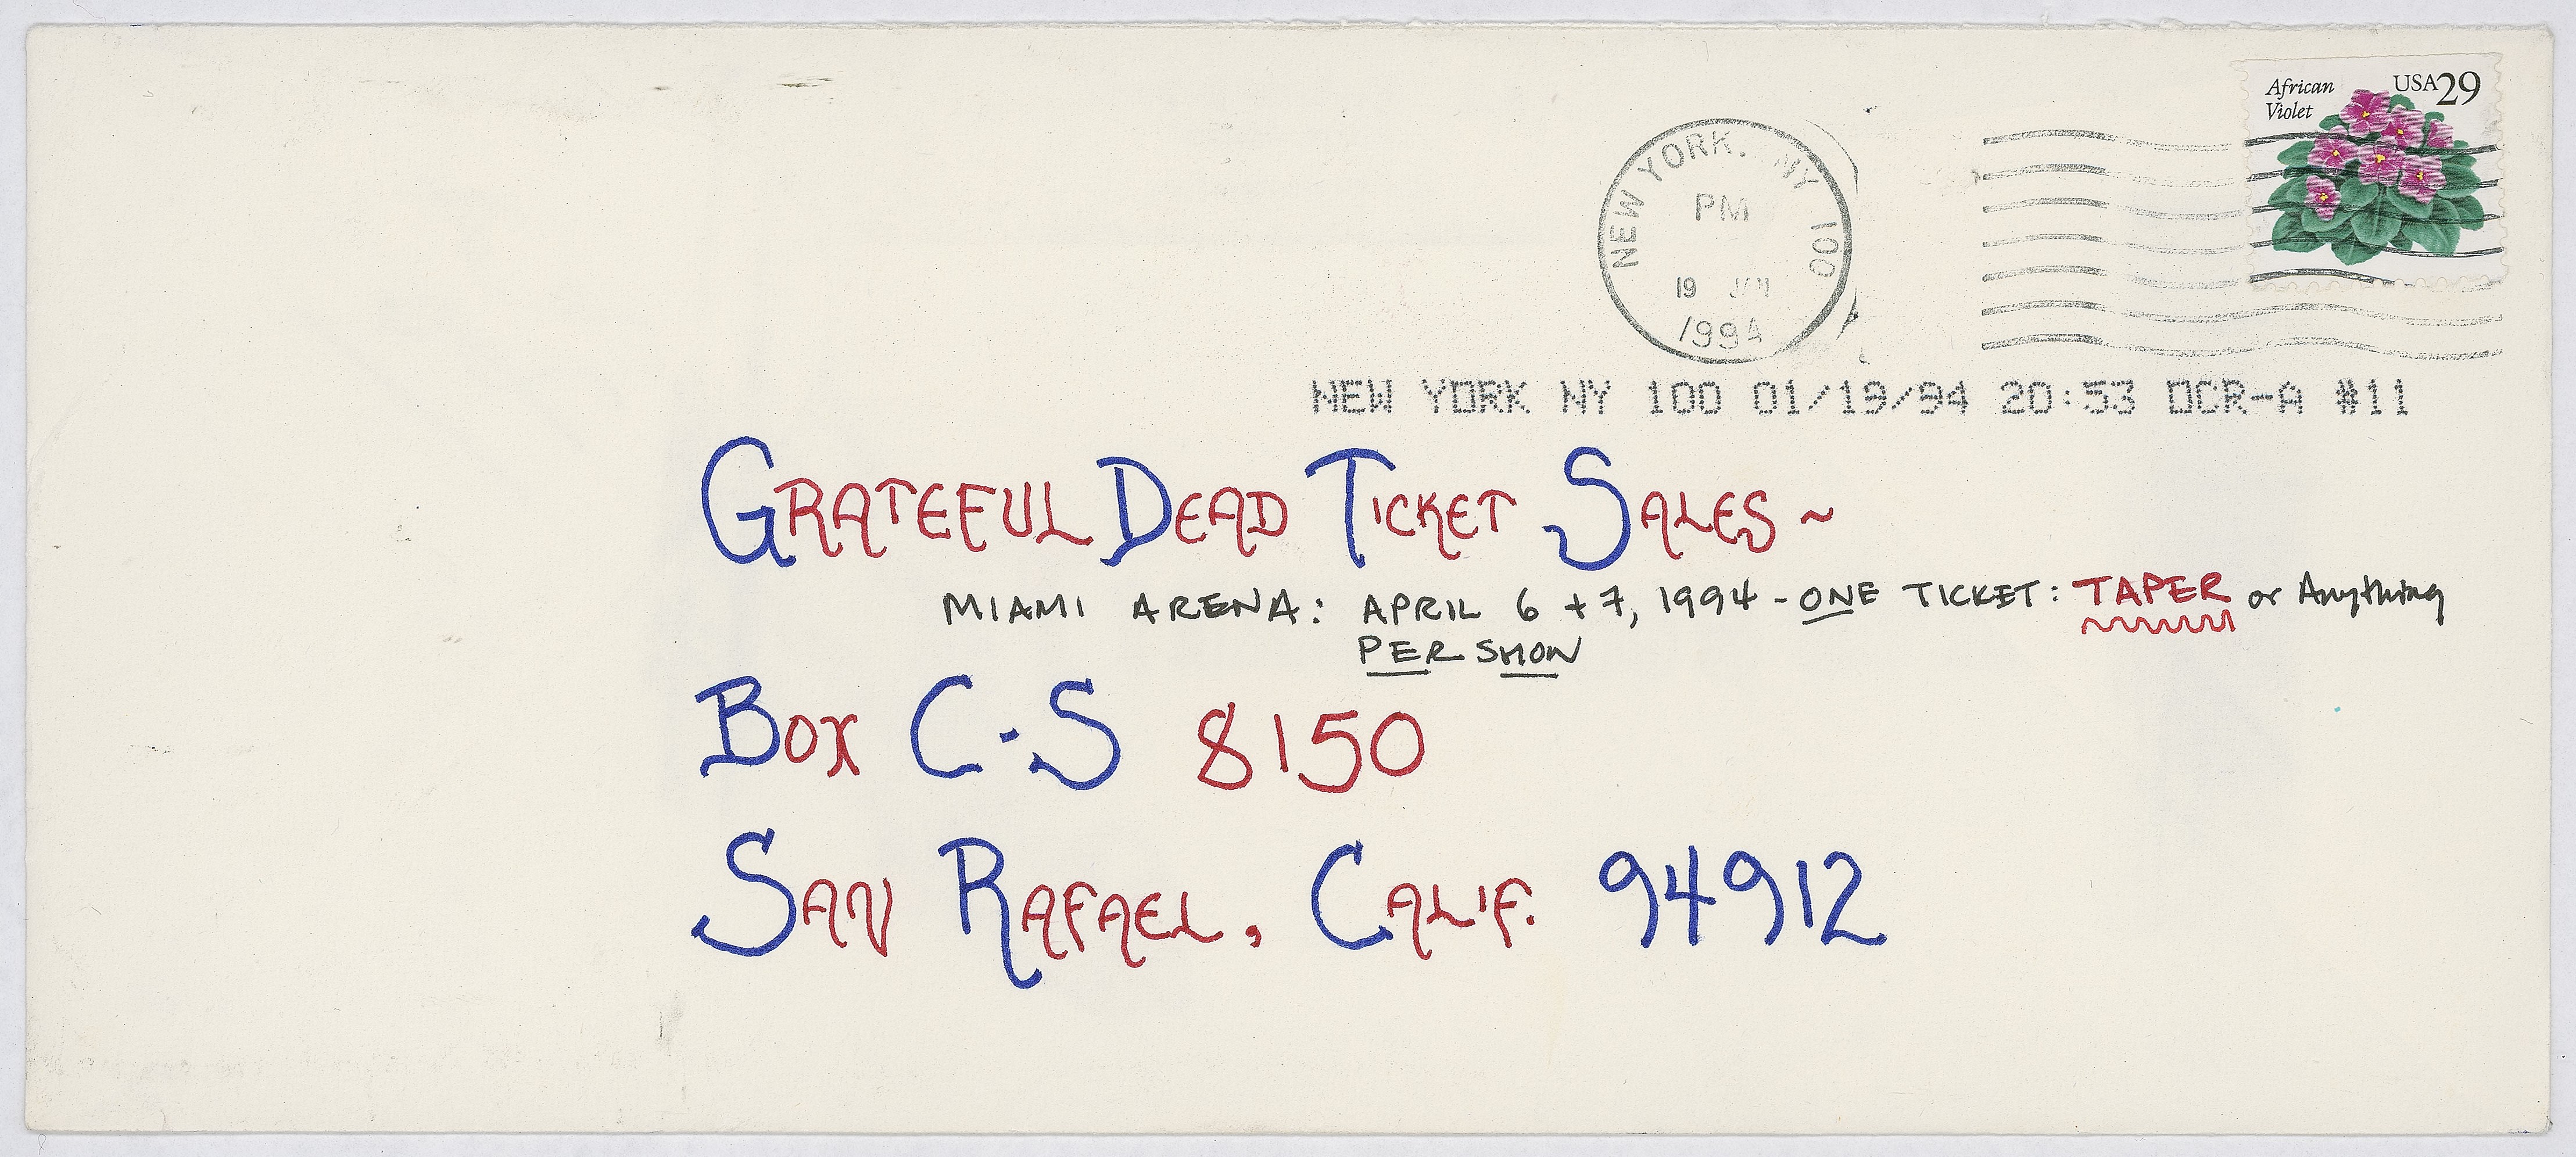 African USA29
Violet
NEW YORK, NY 100
PM
19 JAN
1994
NEW YORK NY 100 01/19/94 20:53 DCR-A #11
GRATEFUL DEAD TICKET SALES ~
MIAMI ARENA: APRIL 6 + 7, 1994 - ONE TICKET: TAPER or Anything
PER SHOW
BOX C-S 8150
SAN RAFAEL, CALIF. 94912